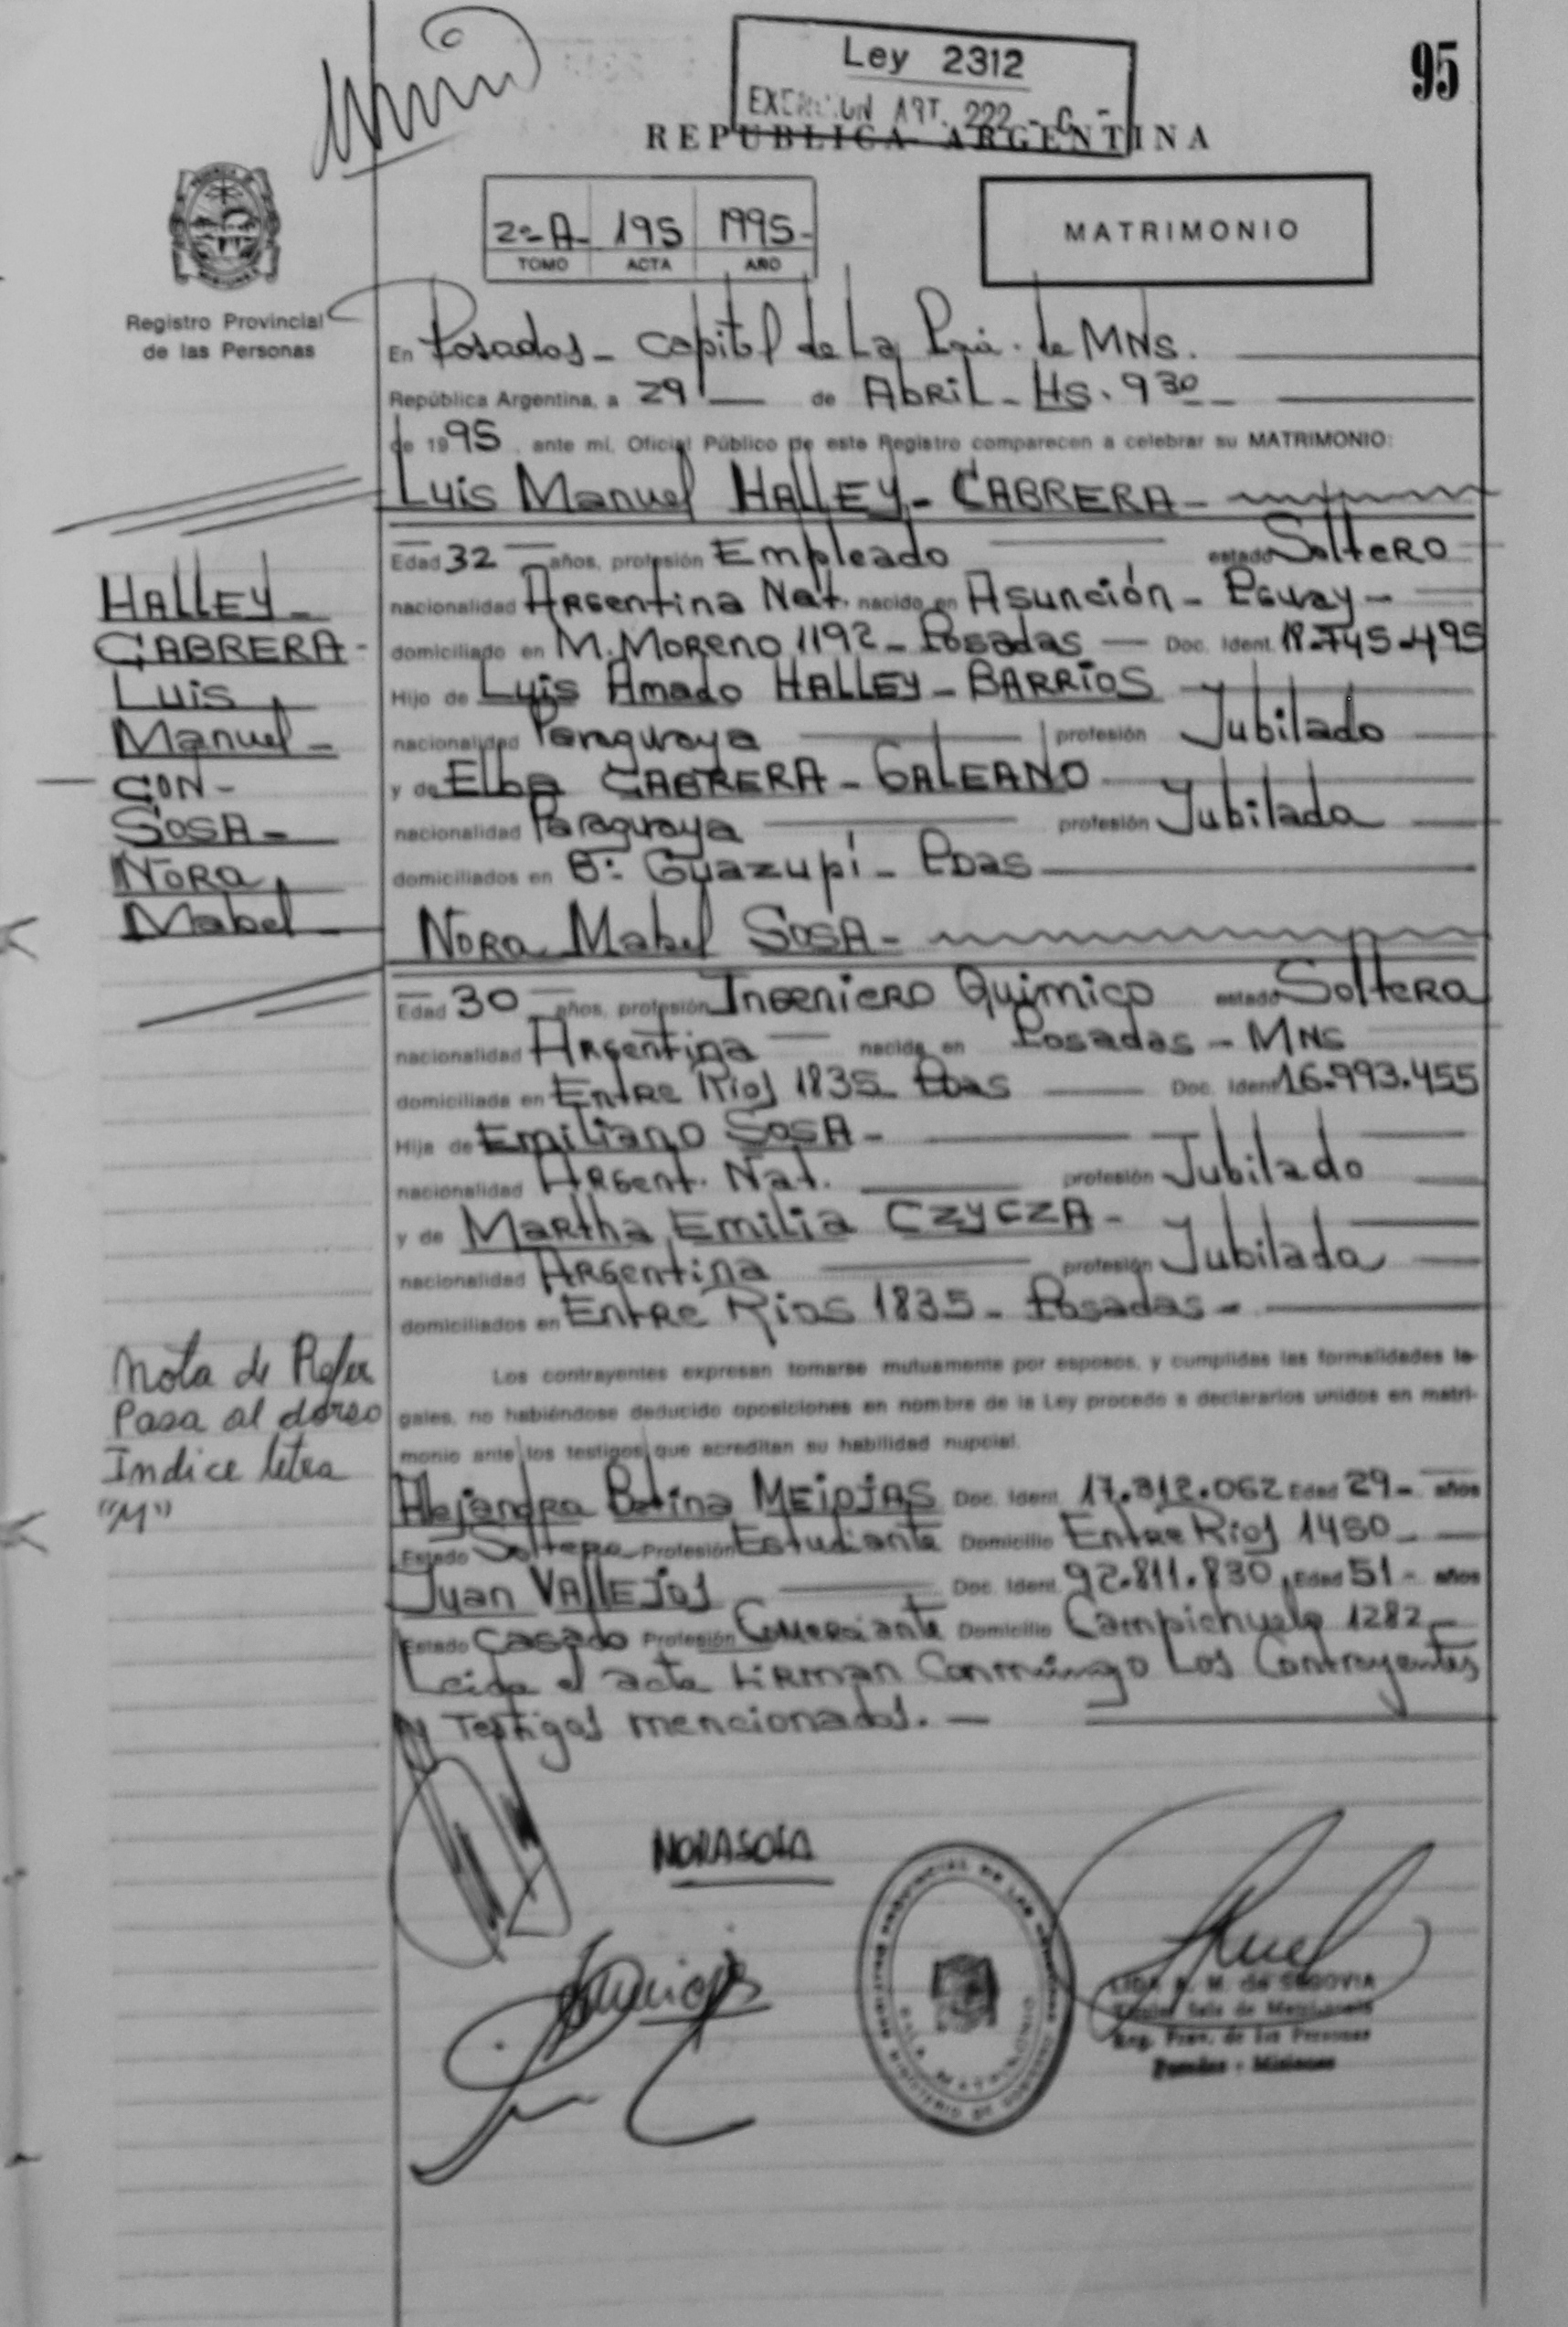 95
Ley 2312
ART. 222
REPUBLICA ARGENTINA
2º A 195 1995-
TOMO ACTA AÑO
MATRIMONIO
Registro Provincial
de las Personas
En Posadas - Capital de La de MNs.
República Argentina, a 29 de Abril - Hs. 9 30
de 1995, ante mí, Oficial Público de este Registro comparecen a celebrar su MATRIMONIO:
Luis Manuel HALLEY - CABRERA -
Edad 32 años, profesión Empleado estado Soltero
nacionalidad Argentina Nat. nacido en Asunción - Pguay -
domiciliado en M. Moreno 1192 - Posadas — Doc. Ident. 18.745.495
Hijo de Luis Amado HALLEY - BARRIOS
nacionalidad Paraguaya profesión Jubilado
y de Elba CABRERA - GALEANO
nacionalidad Paraguaya profesión Jubilada
domiciliados en Bº Guazupí - Pdas
HALLEY -
CABRERA -
Luis
Manuel -
CON -
SOSA -
NORA
Mabel
Nora Mabel SOSA -
Edad 30 años, profesión Ingeniero Quimico estado Soltera
nacionalidad Argentina nacida en Posadas - MNs
domiciliada en Entre Rios 1835 Pdas Doc. Ident. 16.993.455
Hija de Emiliano SOSA -
nacionalidad Argent. Nat. profesión Jubilado
y de Martha Emilia CZYCZA -
nacionalidad Argentina profesión Jubilada
domiciliados en Entre Rios 1835 - Posadas -
Los contrayentes expresan tomarse mutuamente por esposos, y cumplidas las formalidades le-
gales, no habiéndose deducido oposiciones en nombre de la Ley procedo a declararlos unidos en matri-
monio ante los testigos que acreditan su habilidad nupcial.
Nota de Refer
Pasa al dorso
Indice letra
"M"
Alejandra Betina MEIDJAS Doc. Ident. 17.312.062 Edad 29 - años
Estado Soltera Profesión Estudiante Domicilio Entre Rios 1450 -
Juan VALLEJOS Doc. Ident. 92.811.830, Edad 51 - años
Estado Casado Profesión Comerciante Domicilio Campichuelo 1282 -
Leida el acta firman Conmigo Los Contrayentes
y Testigos mencionados. —
NORA SOSA
A. M. de SEGOVIA
Reg. Prov. de las Personas
Posadas - Misiones